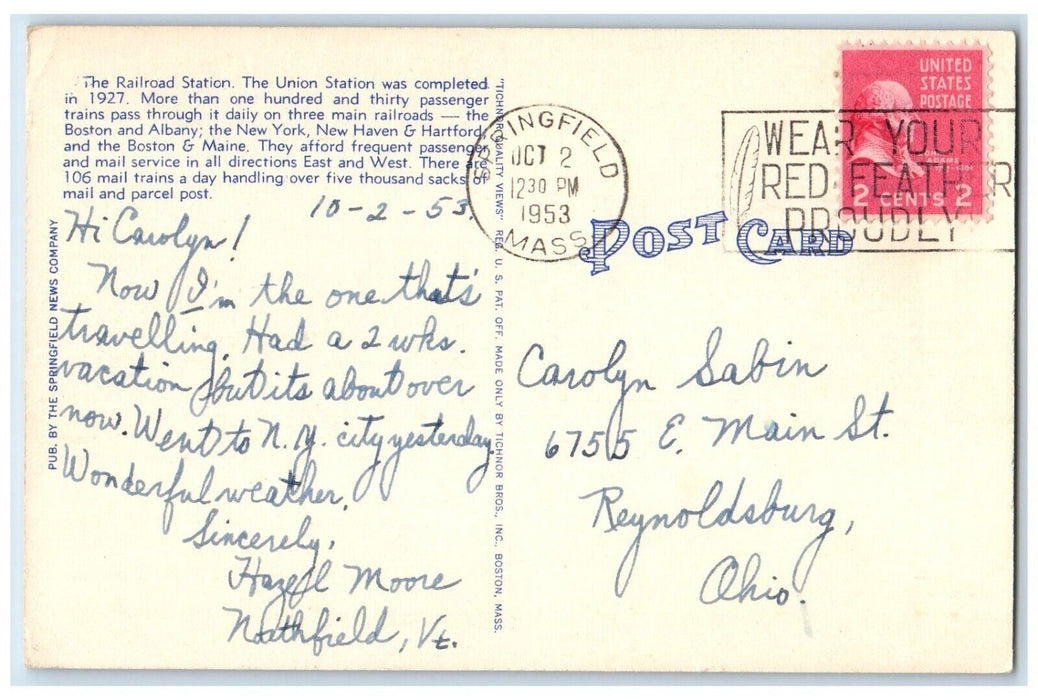 The Railroad Station. The Union Station was completed
in 1927. More than one hundred and thirty passenger
trains pass through it daily on three main railroads — the
Boston and Albany; the New York, New Haven & Hartford
and the Boston & Maine. They afford frequent passenger
and mail service in all directions East and West. There are
106 mail trains a day handling over five thousand sacks of
mail and parcel post.
10-2-53.
Hi Carolyn!
Now I'm the one that's
travelling. Had a 2 wks.
vacation but its about over
now. Went to N.Y. city yesterday.
Wonderful weather.
Sincerely,
Hazel Moore
Northfield, Vt.
PUB. BY THE SPRINGFIELD NEWS COMPANY
"TICHNOR QUALITY VIEWS" REG. U. S. PAT. OFF. MADE ONLY BY TICHNOR BROS., INC., BOSTON, MASS.
SPRINGFIELD
OCT 2
12 30 PM
1953
MASS.
WEAR YOUR
RED FEATHER
PROUDLY
UNITED
STATES
POSTAGE
JOHN
ADAMS
2 CENTS 2
POST CARD
Carolyn Sabin
6755 E. Main St.
Reynoldsburg,
Ohio.